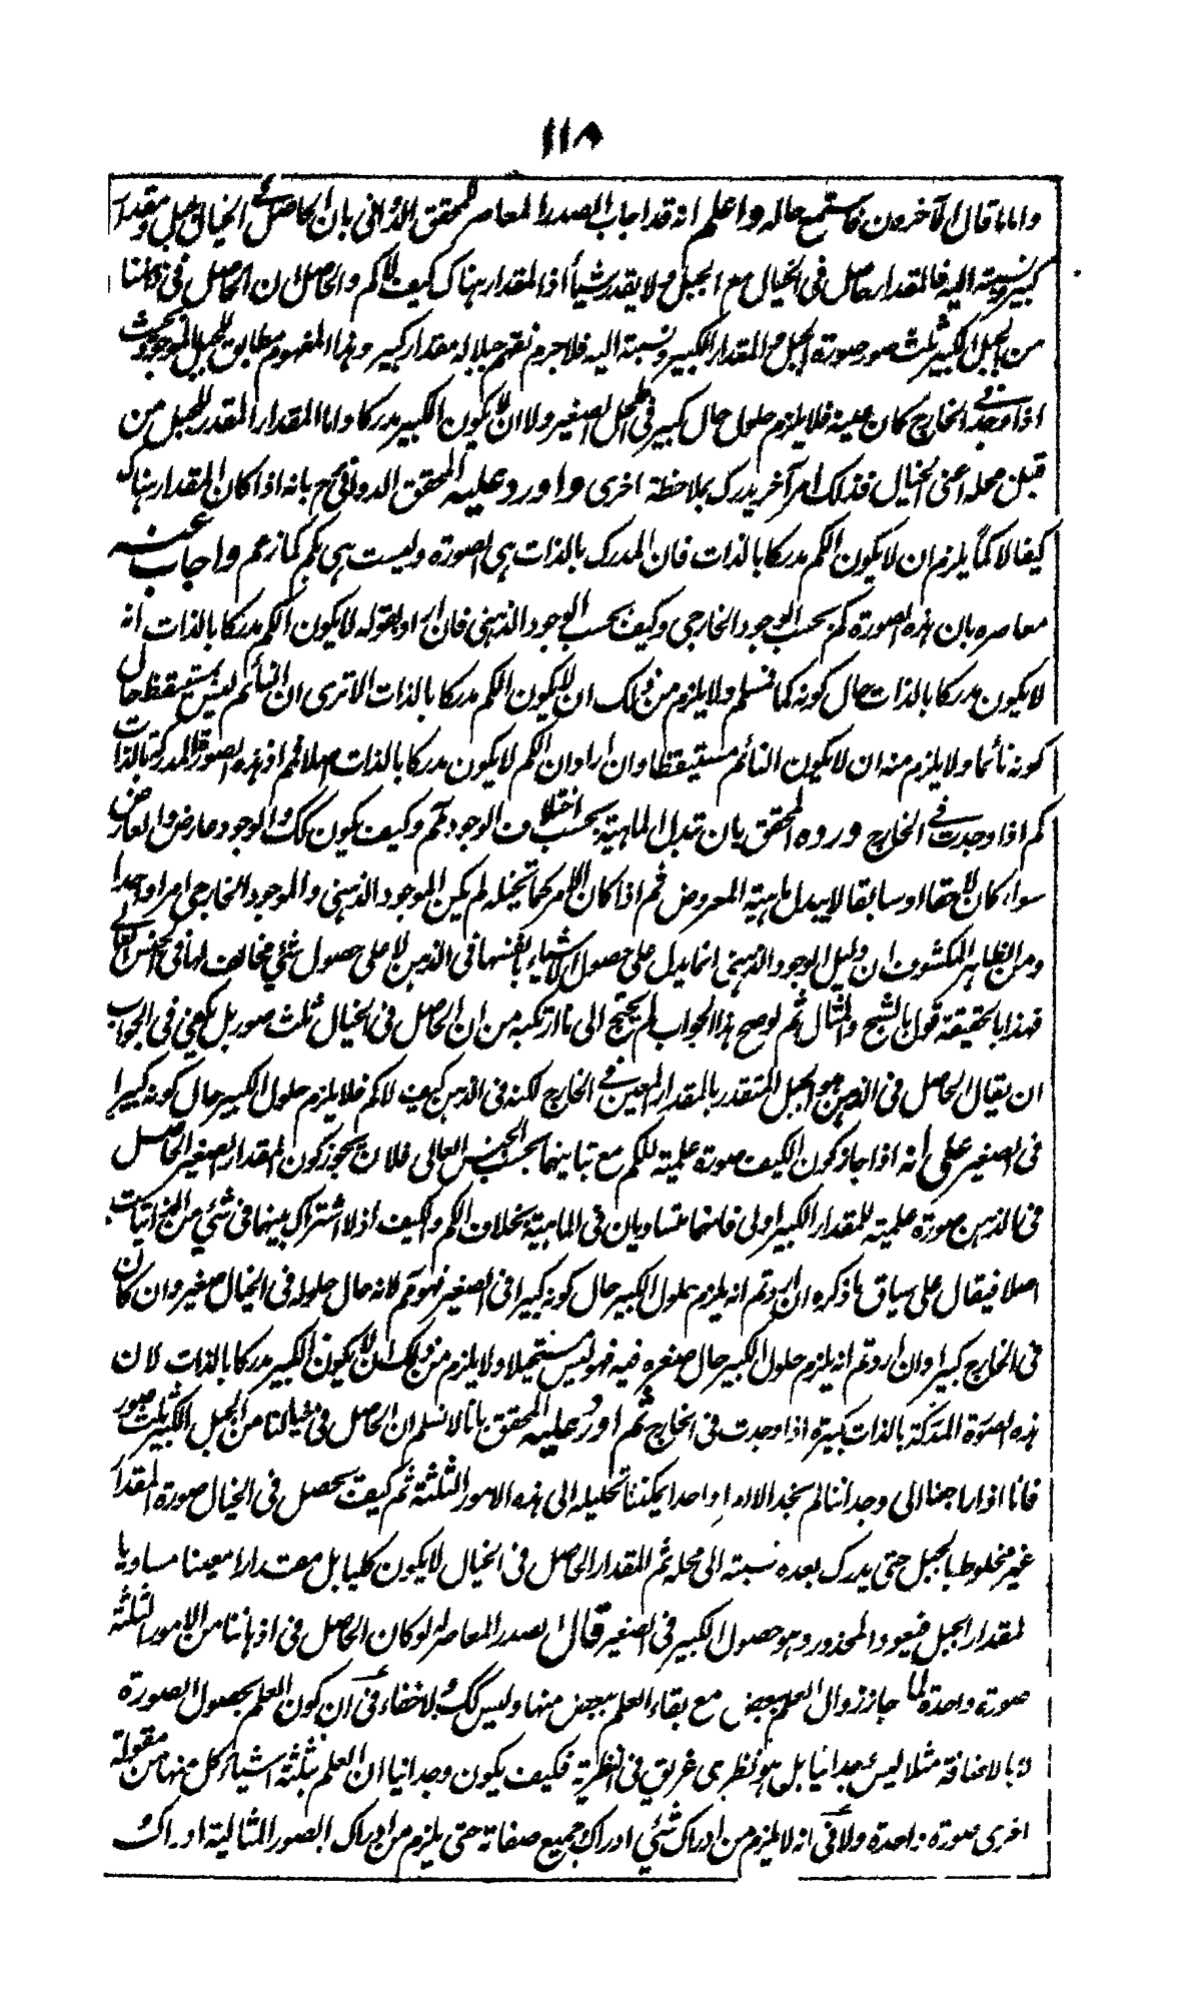 ١١٨
واما ما قال الآخرون فاستمع حاله واعلم انه قد اجاب الصدر المعاصر للمحقق الدوانى بان الحاصل فى الخيال جبل ومقدار
كبير ونسبته اليه فالمقدار حاصل فى الخيال مع الجبل ولا يقدر شيأ اذ المقدار هناك كيف لا كم والحاصل ان الحاصل فى خيالنا
من الجبل الكبير ثلث صور صورة الجبل والمقدار الكبير ونسبته اليه فلا جرم نفهم جبلا له مقدار كبير وهذا المفهوم مطابق للجبل الموجود بحيث
اذا وجد فى الخارج كان عينه فلا يلزم حلول حال كبير فى المحل الصغير ولا ان لا يكون الكبير مدركا واما المقدار المقدر للجبل من
قبل محله اعنى الخيال فذلك امر آخر يدرك بملاحظة اخرى واورد عليه المحقق الدوانى ح بانه اذا كان المقدار هناك
كيفا لا كماً يلزم ان لا يكون الكم مدركا بالذات فان المدرك بالذات هى الصورة وليست هى بكم كما زعم واجاب عنه
معاصره بان هذه الصورة كم بحسب الوجود الخارجى وكيف بحسب الوجود الذهنى فان اراد بقوله لا يكون الكم مدركا بالذات انه
لا يكون مدركا بالذات حال كونه كما فنسلم ولا يلزم من ذلك ان لا يكون الكم مدركا بالذات الا ترى ان النائم ليس بمستيقظ حال
كونه نائما ولا يلزم منه ان لا يكون النائم مستيقظا وان اراد ان الكم لا يكون مدركا بالذات اصلا فمم اذ هذه الصورة المدركة بالذات
كم اذا وجدت فى الخارج ورده المحقق بان تبدل الماهية بحسب اختلاف الوجود مم وكيف يكون كك والوجود عارض والعارض
سواء كان لاحقا او سابقا لا يبدل ماهية المعروض ثم اذا كان الامر كما تخيله لم يكن الموجود الذهنى والموجود الخارجى امرا واحدا
ومن الظاهر المكشوف ان دليل الوجود الذهنى انما يدل على حصول الاشياء بانفسها فى الذهن لا على حصول شئ مخالف لها فى الجنس العالى
فهذا بالحقيقة قول بالشبح والمثال ثم لو صح هذا الجواب لم يحتج الى ما ارتكبه من ان الحاصل فى الخيال ثلث صور بل يكفى فى الجواب
ان يقال الحاصل فى الذهن هو الجبل المتقدر بالمقدار المعين فى الخارج لكنه فى الذهن كيف لا كم فلا يلزم حلول الكبير حال كونه كبيرا
فى الصغير على انه اذا جاز كون الكيف صورة علمية للكم مع تباينهما بحسب الجنس العالى فلان يجوز كون المقدار الصغير الحاصل
فى الذهن صورة علمية للمقدار الكبير اولى فانهما متساويان فى الماهية بخلاف الكم والكيف اذ لا اشتراك بينهما فى شئ من الذاتيات
اصلا فيقال على سياق ما ذكره ان اردتم انه يلزم حلول الكبير حال كونه كبيرا فى الصغير فهو مم لانه حال حلوله فى الخيال صغير وان كان
فى الخارج كبيرا وان اردتم انه يلزم حلول الكبير حال صغره فيه فهو ليس مستحيلا ولا يلزم من ذلك ان لا يكون الكبير مدركا بالذات لان
هذه الصورة المدركة بالذات كبيرة اذا وجدت فى الخارج ثم اورد عليه المحقق بانا لا نسلم ان الحاصل فى خيالنا من الجبل الكبير ثلث صور
فانا اذا راجعنا الى وجداننا لم نجد الا امرا واحدا يمكننا تحليله الى هذه الامور الثلثة ثم كيف يحصل فى الخيال صورة المقدار
غير مخلوط بالجبل حتى يدرك بعده نسبته الى محله ثم المقدار الحاصل فى الخيال لا يكون كليا بل مقدارا معينا مساويا
لمقدار الجبل فيعود المحذور وهو حصول الكبير فى الصغير قال الصدر المعاصر لو كان الحاصل فى اذهاننا من الامور الثلثة
صورة واحدة لما جاز زوال العلم ببعض مع بقاء العلم ببعض منها وليس كك ولا خفاء فى ان كون العلم بحصول الصورة
لا بالاضافة مثلا ليس وجدانيا بل هو نظرى غريق فى النظرية فكيف يكون وجدانيا ان العلم بثلثة اشياء كل منها من مقولة
اخرى صورة واحدة ولا فى انه لا يلزم من ادراك شئ ادراك جميع صفاته حتى يلزم من ادراك الصور المثالية ادراك